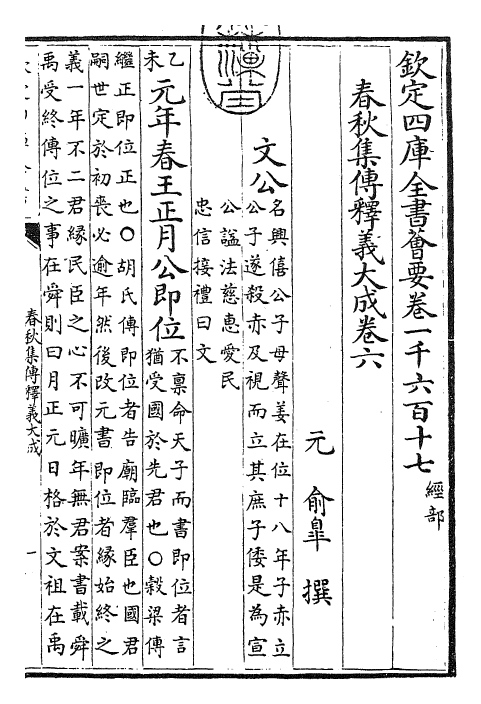 欽定四庫全書薈要卷一千六百十七 經部
春秋集傳釋義大成卷六
元 俞臯 撰
文公 名興僖公子母聲姜在位十八年子赤立
公子遂殺赤及視而立其庶子倭是為宣
公諡法慈惠愛民
忠信接禮曰文
乙未 元年春王正月公即位 不稟命天子而書即位者言
猶受國於先君也○穀梁傳
繼正即位正也○胡氏傳即位者告廟臨羣臣也國君
嗣世定於初喪必逾年然後改元書即位者緣始終之
義一年不二君緣民臣之心不可曠年無君案書載舜
禹受終傳位之事在舜則曰月正元日格於文祖在禹
春秋集傳釋義大成
一